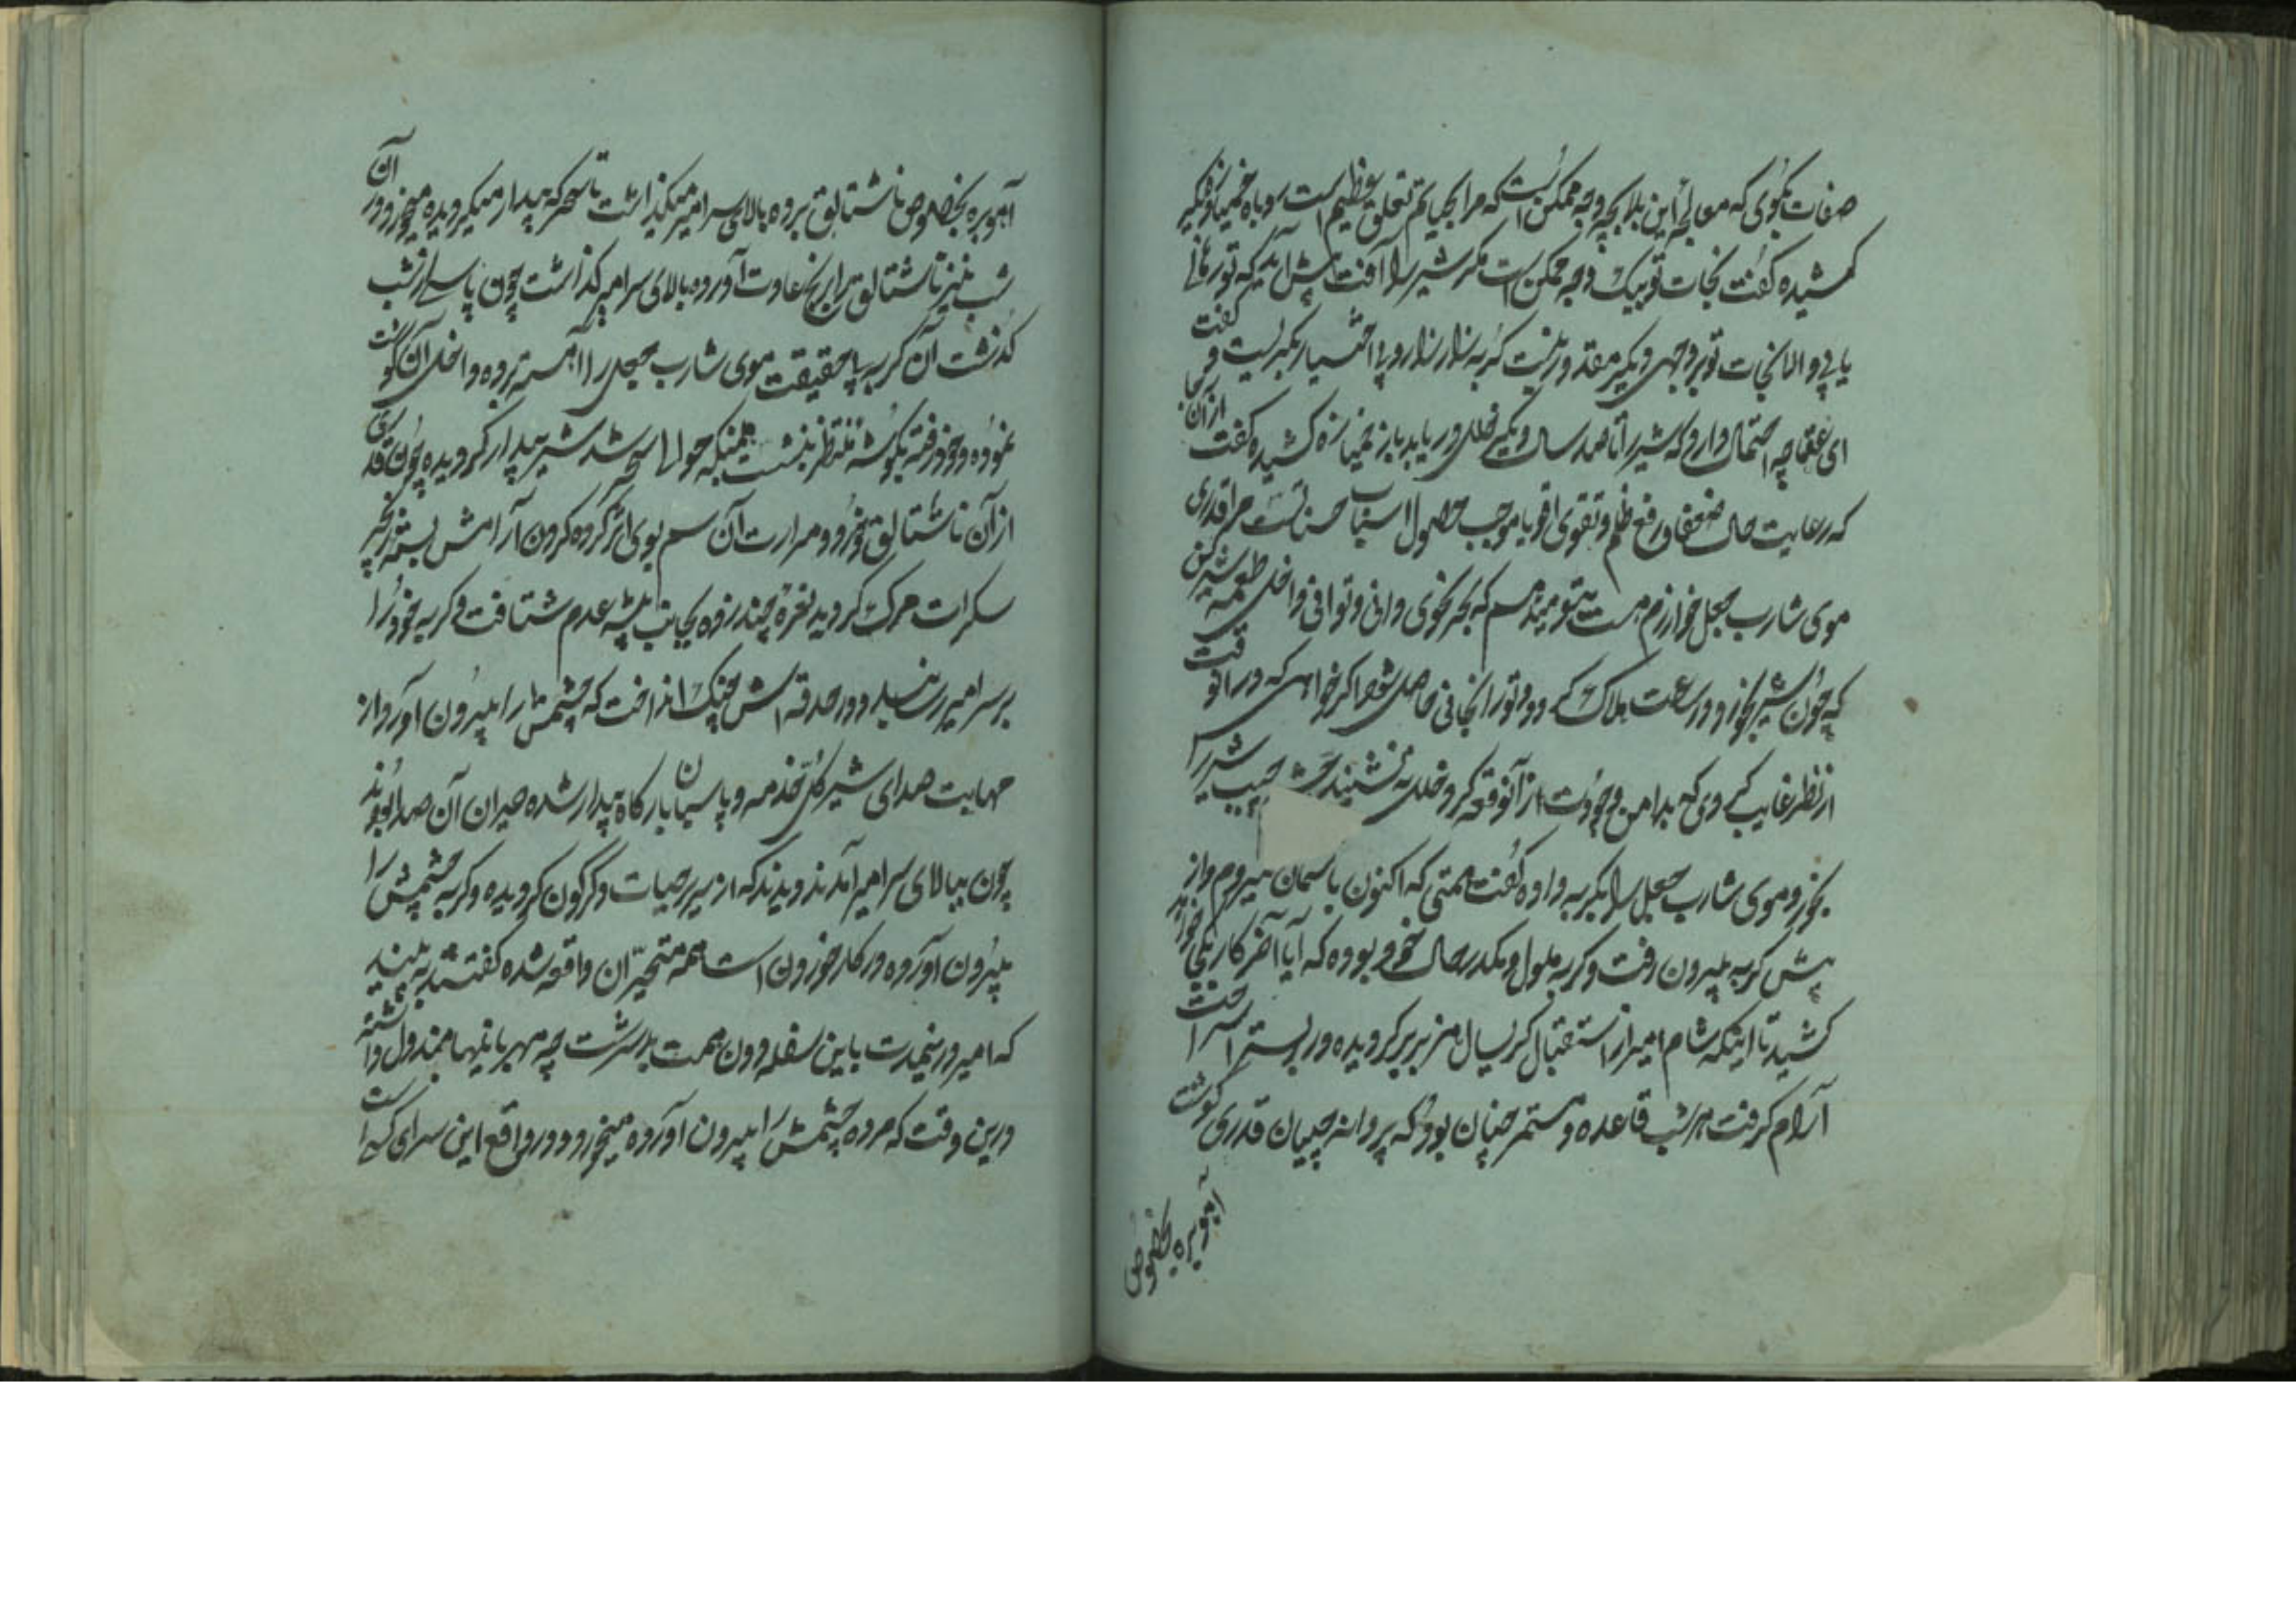 صفات بگوی که معالجهٔ این بلا بچه وجه ممکن است که مرا بحیاتم تعلق عظیم است روباه خمیازهٔ دیگر
کشیده گفت نجات تو بیک وجه ممکن است مگر شیر را آفت پیش آید که تو رهائی
یابی و الا نجات تو بر وجهی دیگر مقدور نیست گربه بزار بزار و بی اختیار بگریست و گفت
ای عنقا چه احتمال دارد که شیر را تا صد سال دیگر خللی دریابد باز خمیازه کشیده گفت از آنجا
که رعایت حال ضعفا و رفع ظلم و تقوی اقویا موجب حصول اسباب حسناتست مرا قدری
موی شارب جعل خوارزم هست بتو میدهم که بهر نحوی دانی و توانی داخل طعمهٔ شیر کن
که چون شیر بخورد در ساعت هلاک گردد و تو را نجاتی حاصل شود اگر خواهی که در آنوقت
از نظر غایب گردی بدامن وجودت از آن وقعه گرد خللی نه نشیند شیر را
بخورد موی شارب جعل را بگربه داده گفت همتی که اکنون باسمان میروم و از
پیش گربه بیرون رفت و گربه ملول و مکدر حال خود بوده که آیا آخر کار بکجا خواهد
کشید تا اینکه شام امیر از استقبال کریسال هنزبر برگردیده در بستر استراحت
آرام گرفت هر شب قاعده مستمر چنان بود که پروانه چیان قدری گوشت
آهوبره بخصوص
آهوبره بخصوص ناشتالق برده بالای سر امیر میگذاشت تا سحر که بیدار میگردیده میخورد در آن
شب نیز ناشتالق برابر نخ عادت آورده بالای سر امیر گذاشت چون پاسی از شب
گذشت آن گربه پا حقیقت موی شارب جعل را آهسته برده داخل آن گوشت
نموده و خود رفته بگوشه منتظر بنشست همینکه حوالی سحر شد شیر بیدار گردیده چون قدری
از آن ناشتالق خورد و مرارت آن سم بوی اثر کرده گردون آرامش بسته زنجیر
سکرات مرگ گردید نعرهٔ چند زده بجانب بیشهٔ عدم شتافت و گربه خود را
بر سر امیر رسانید و در حدقه اش چنگ انداخت که چشمش را بیرون آورد از
مهابت صدای شیر کل خدمه و پاسبانان بارگاه بیدار شده حیران آن صدا بودند
چون ببالای سر امیر آمدند دیدند که از سریر حیات دگرگون گردیده و گربه چشمش را
بیرون آورده در کار خوردن است همه متحیر آن واقعه شده گفتند به بینید
که امیر در نیمدت باین سفله دون همت بد سرشت چه مهربانیها مبذول داشته
درین وقت که مرده چشمش را بیرون آورده میخورد و در واقع این سزای کسی است